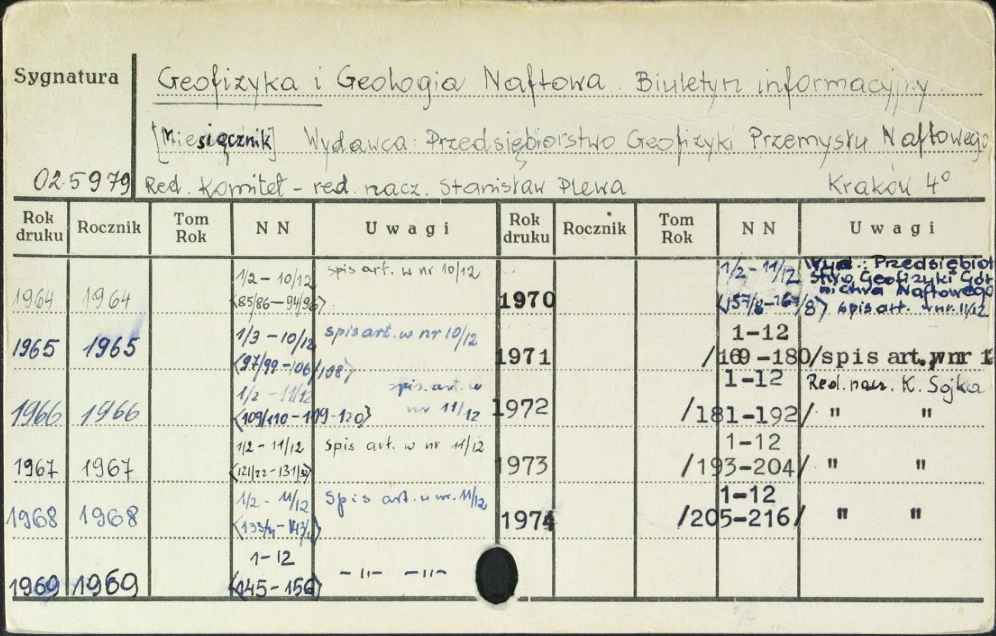 Sygnatura
Geofizyka i Geologia Naftowa. Biuletyn informacyjny
[Miesięcznik] Wydawca: Przedsiębiorstwo Geofizyki Przemysłu Naftowego
025979 Red. Komitet - red. nacz. Stanisław Plewa Kraków 4°
Rok druku Rocznik Tom Rok N N Uwagi Rok druku Rocznik Tom Rok N N Uwagi
1964 1964 1/2-10/12 <85/86-94/96> spis art. w nr 10/12
1965 1965 1/3-10/12 <97/99-106/108> spis art. w nr 10/12
1966 1966 1/2-11/12 <109/110-119-120> spis. art. w nr 11/12
1967 1967 1/2-11/12 <121/22-131/32> spis art. w nr 11/12
1968 1968 1/2-11/12 spis art. w nr. 11/12
1969 1969 1-12 <145-156> -"- -"-
1970 1/2-11/12 Wyd.: Przedsiębiorstwo Geofizyki Górnictwa Naftowego spis art. w nr. 11/12
1971 1-12 /169-180/ spis art. w nr 12
1972 1-12 /181-192/ Red. nacz. K. Sojka " "
1973 1-12 /193-204/ " "
1974 1-12 /205-216/ " "